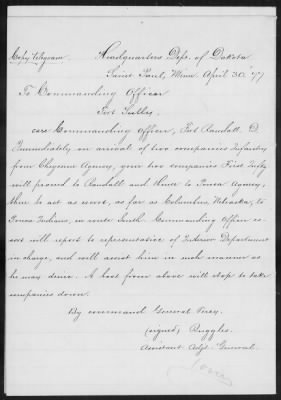 Copy telegram. Headquarters Dept. of Dakota
Saint Paul, Minn April 30. '77
To Commanding Officer
Fort Sully,
care Commanding Officer, Fort Randall. D.
Immediately, on arrival of two companies Infantry
from Cheyenne Agency, your two companies First Infty
will proceed to Randall and thence to Ponca Agency,
there to act as escort, as far as Columbus, Nebraska, to
Ponca Indians, en route South. Commanding Officer es-
cort will report to representative of Interior Department
in charge, and will assist him in such manner as
he may desire. A boat from above will stop to take
companies down.
By command General Terry.
(signed) Ruggles.
Assistant Adjt. General.
Ponca